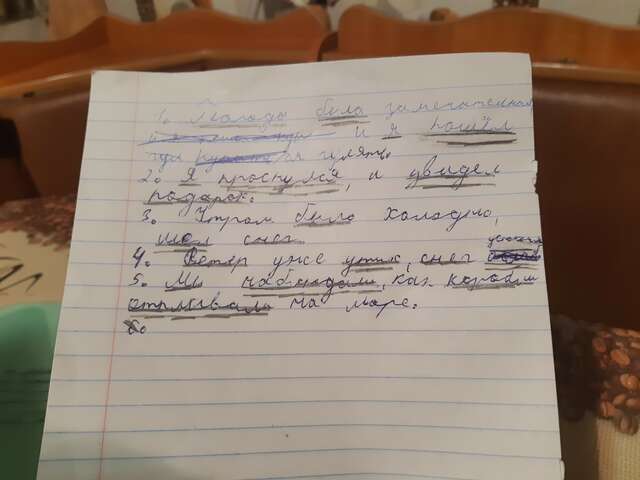 1. Погода была замечательная
и я пошёл
гулять.
2. Я проснулся, и увидел
подарок.
3. Утром было холодно,
шёл снег.
4. Ветер уже утих, снег
5. Мы наблюдали, как корабли
отплывали на море.
6.